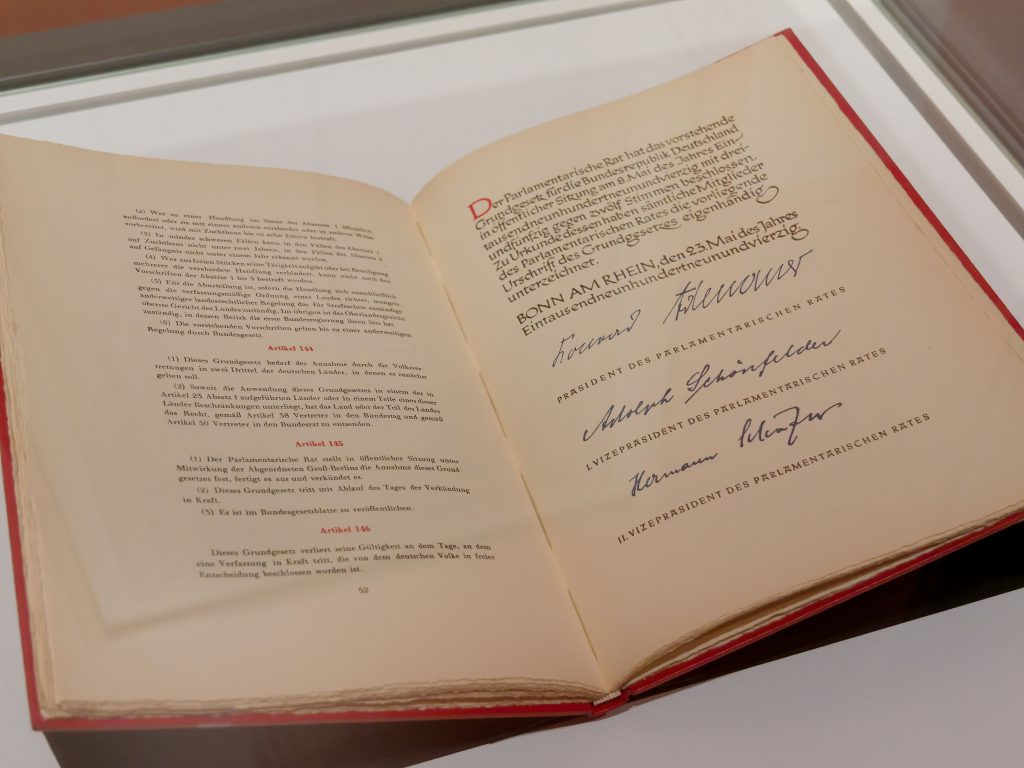 (2) Wer zu einer Handlung im Sinne des Absatzes 1 öffentlich
auffordert oder sie mit einem anderen verabredet oder in anderer Weise
vorbereitet, wird mit Zuchthaus bis zu zehn Jahren bestraft.
(3) In minder schweren Fällen kann in den Fällen des Absatzes 1
auf Zuchthaus nicht unter zwei Jahren, in den Fällen des Absatzes 2
auf Gefängnis nicht unter einem Jahr erkannt werden.
(4) Wer aus freien Stücken seine Tätigkeit aufgibt oder bei Beteiligung
mehrerer die verabredete Handlung verhindert, kann nicht nach den
Vorschriften der Absätze 1 bis 3 bestraft werden.
(5) Für die Aburteilung ist, sofern die Handlung sich ausschließlich
gegen die verfassungsmäßige Ordnung eines Landes richtet, mangels
anderweitiger landesrechtlicher Regelung das für Strafsachen zuständige
oberste Gericht des Landes zuständig. Im übrigen ist das Oberlandesgericht
zuständig, in dessen Bezirk die erste Bundesregierung ihren Sitz hat.
(6) Die vorstehenden Vorschriften gelten bis zu einer anderweitigen
Regelung durch Bundesgesetz.
Artikel 144
(1) Dieses Grundgesetz bedarf der Annahme durch die Volksver-
tretungen in zwei Drittel der deutschen Länder, in denen es zunächst
gelten soll.
(2) Soweit die Anwendung dieses Grundgesetzes in einem der in
Artikel 23 Absatz 1 aufgeführten Länder oder in einem Teile eines dieser
Länder Beschränkungen unterliegt, hat das Land oder der Teil des Landes
das Recht, gemäß Artikel 38 Vertreter in den Bundestag und gemäß
Artikel 50 Vertreter in den Bundesrat zu entsenden.
Artikel 145
(1) Der Parlamentarische Rat stellt in öffentlicher Sitzung unter
Mitwirkung der Abgeordneten Groß-Berlins die Annahme dieses Grund-
gesetzes fest, fertigt es aus und verkündet es.
(2) Dieses Grundgesetz tritt mit Ablauf des Tages der Verkündung
in Kraft.
(3) Es ist im Bundesgesetzblatte zu veröffentlichen.
Artikel 146
Dieses Grundgesetz verliert seine Gültigkeit an dem Tage, an dem
eine Verfassung in Kraft tritt, die von dem deutschen Volke in freier
Entscheidung beschlossen worden ist.
52
Der Parlamentarische Rat hat das vorstehende
Grundgesetz für die Bundesrepublik Deutschland
in öffentlicher Sitzung am 8. Mai des Jahres Ein-
tausendneunhundertneunundvierzig mit drei-
undfünfzig gegen zwölf Stimmen beschlossen.
Zu Urkunde dessen haben sämtliche Mitglieder
des Parlamentarischen Rates die vorliegende
Urschrift des Grundgesetzes eigenhändig
unterzeichnet.
BONN AM RHEIN, den 23. Mai des Jahres
Eintausendneunhundertneunundvierzig.
Konrad Adenauer
PRÄSIDENT DES PARLAMENTARISCHEN RATES
Adolph Schönfelder
I. VIZEPRÄSIDENT DES PARLAMENTARISCHEN RATES
Hermann Schäfer
II. VIZEPRÄSIDENT DES PARLAMENTARISCHEN RATES